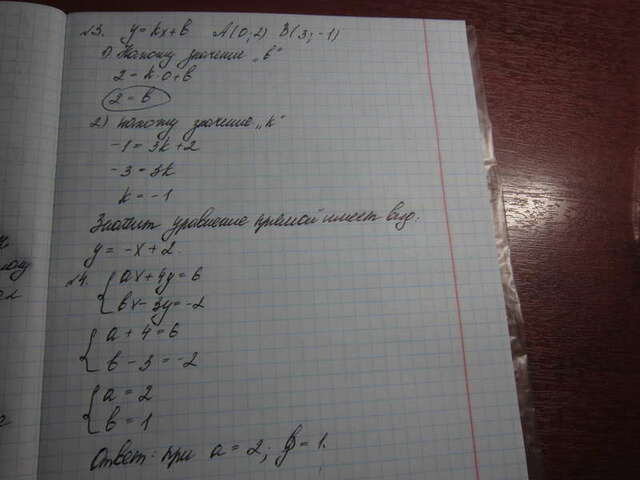 №3. y = kx + b A(0; 2) B(3; -1)
1) Нахожу значение „b"
2 = k·0 + b
2 = b
2) нахожу значение „k"
-1 = 3k + 2
-3 = 3k
k = -1
Значит уравнение прямой имеет вид:
y = -x + 2.
№4. { ax + 4y = 6
bx - 3y = -2
{ a + 4 = 6
b - 3 = -2
{ a = 2
b = 1
Ответ: при a = 2; b = 1.